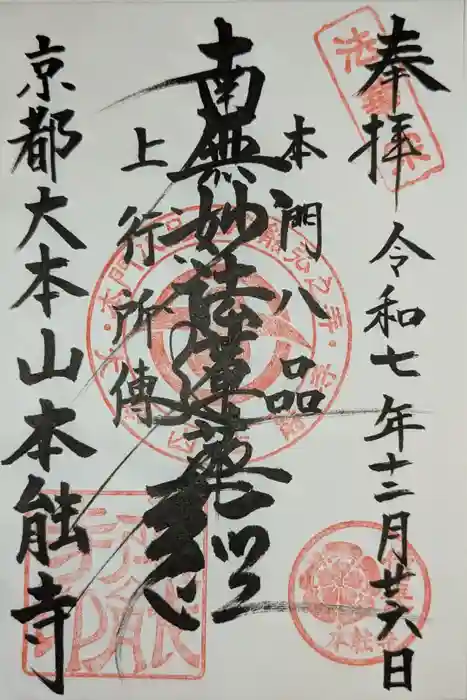 奉拝
令和七年十二月廿六日
本門八品
南無妙法蓮華経
上行所傳
京都大本山本能寺